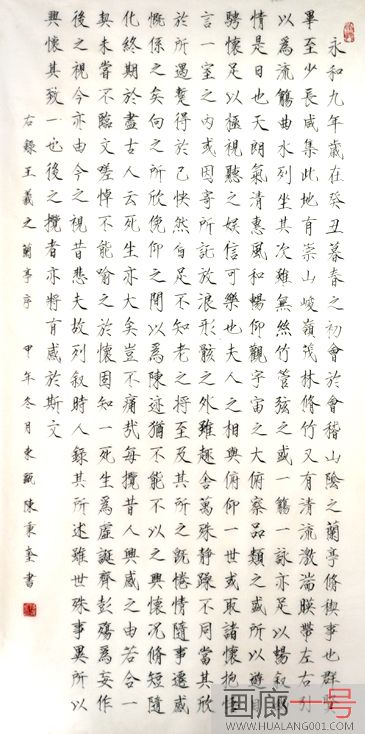 永和九年歲在癸丑暮春之初會於會稽山陰之蘭亭脩禊事也群賢
畢至少長咸集此地有崇山峻嶺茂林脩竹又有清流激湍映帶左右引
以為流觴曲水列坐其次雖無絲竹管弦之盛一觴一詠亦足以暢敘幽
情是日也天朗氣清惠風和暢仰觀宇宙之大俯察品類之盛所以遊目
騁懷足以極視聽之娛信可樂也夫人之相與俯仰一世或取諸懷抱悟
言一室之內或因寄所託放浪形骸之外雖趣舍萬殊靜躁不同當其欣
於所遇蹔得於己快然自足不知老之將至及其所之既惓情隨事遷感
慨係之矣向之所欣俛仰之間以為陳迹猶不能不以之興懷況脩短隨
化終期於盡古人云死生亦大矣豈不痛哉每攬昔人興感之由若合一
契未嘗不臨文嗟悼不能喻之於懷固知一死生為虛誕齊彭殤為妄作
後之視今亦由今之視昔悲夫故列敘時人錄其所述雖世殊事異所以
興懷其致一也後之攬者亦將有感於斯文
右錄王羲之蘭亭序 甲年冬月東甌陳秉奎書
画廊一号
WWW.HUALANG001.COM